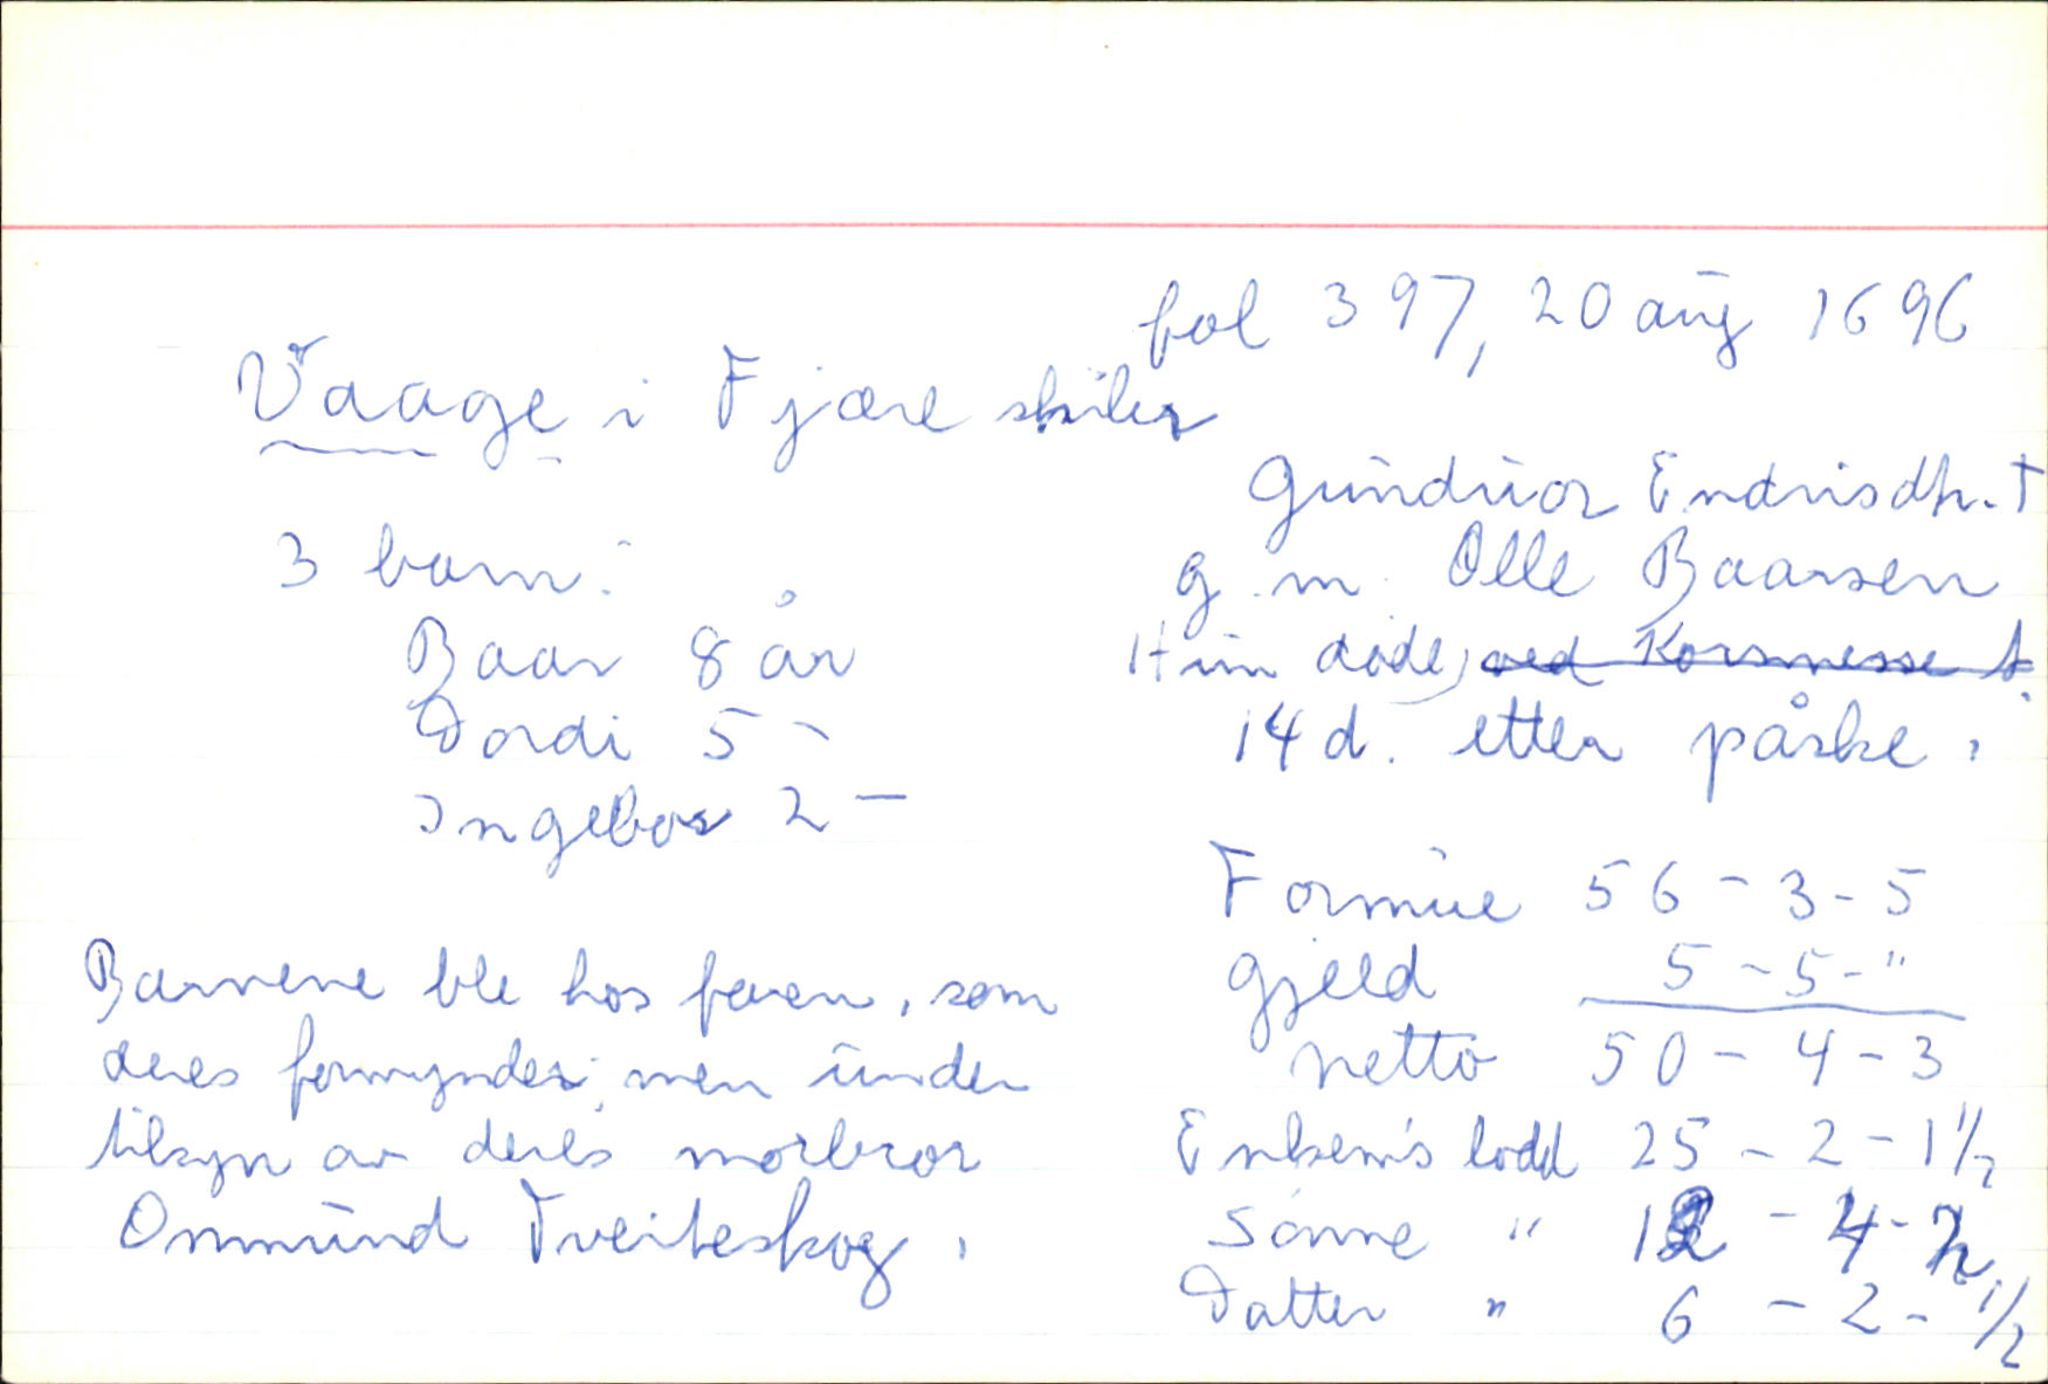 fol 397, 20 aug 1696
Vaage i Fjære skiler
Gunduor Endrisdtr. †
g. m. Olle Baarsen
Hun døde, ved Korsmesse t.
14 d. etter påske.
3 barn:
Baar 8 år
Dordi 5 -
Ingebor 2 -
Formue 56 - 3 - 5
gjeld 5 - 5 - "
netto 50 - 4 - 3
Enkem's lodd 25 - 2 - 1 1/2
Sønne " 12 - 4 -
Datter " 6 - 2 - 1/2
Barnene ble hos faren, som
deres formynder, men under
tilsyn av deres morbror
Ommund Tveiteskog.